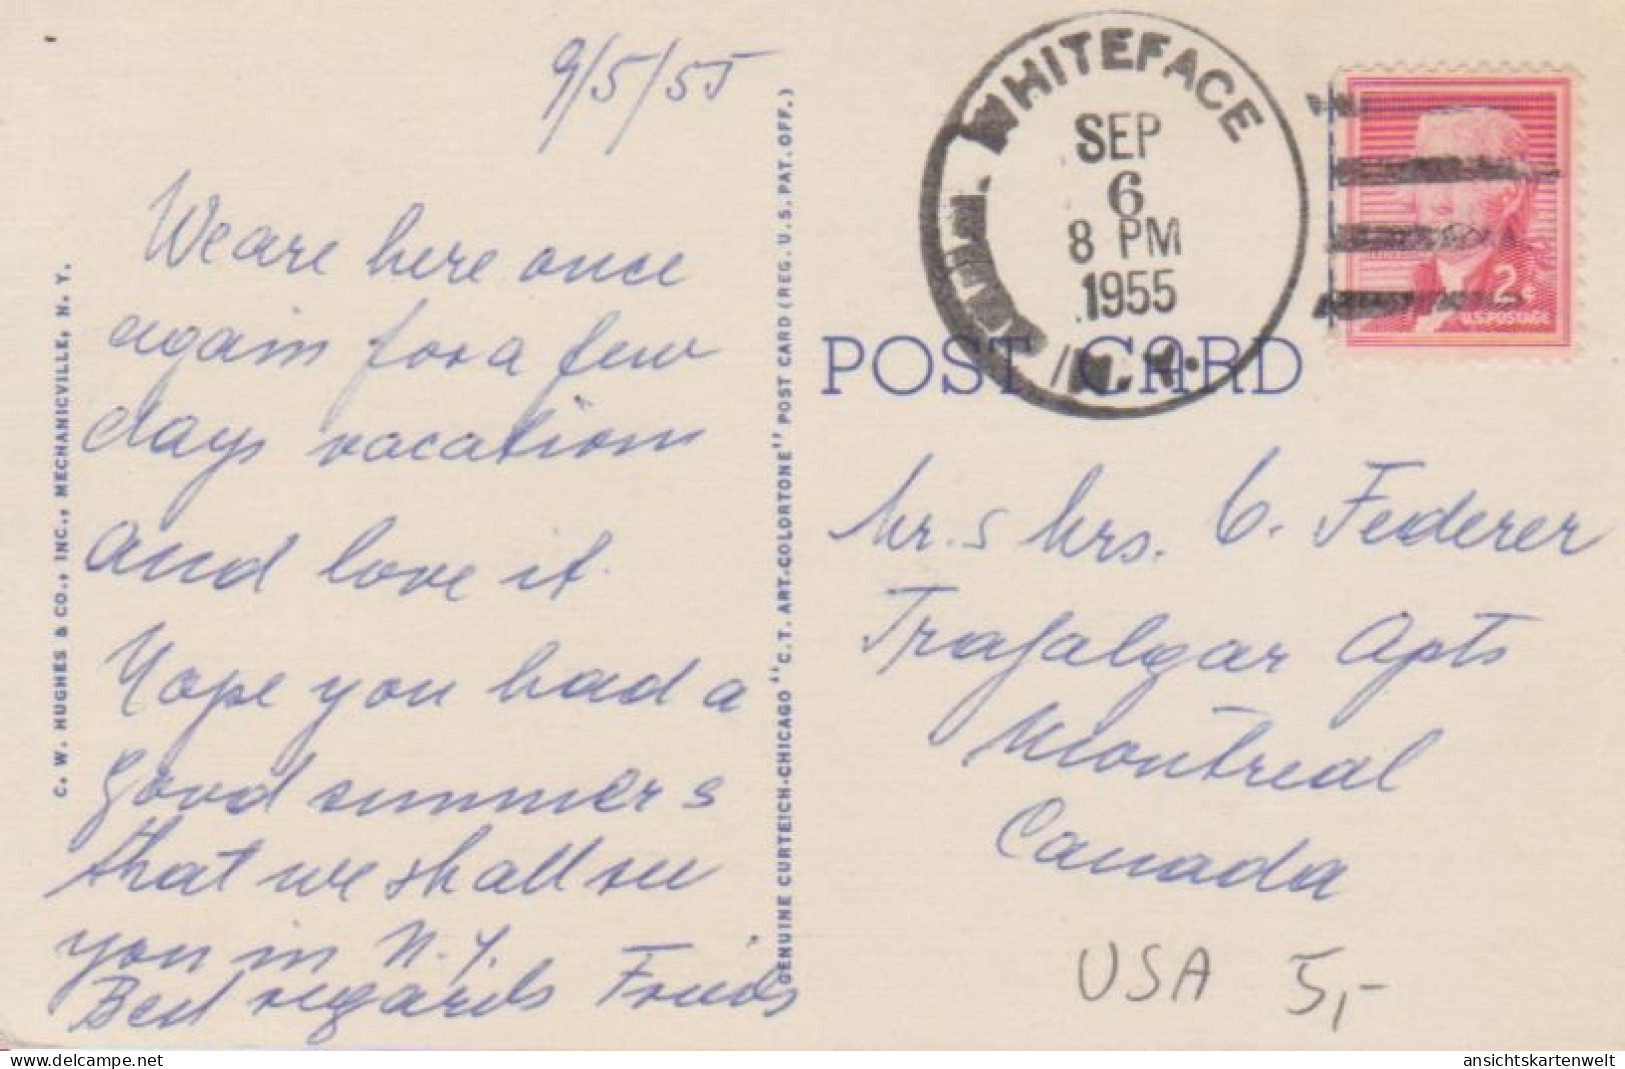 9/5/55
We are here once
again for a few
days vacation
and love it.
Hope you had a
good summer &
that we shall see
you in N.Y.
Best regards Frieds
C. W. HUGHES & CO., INC., MECHANICVILLE, N. Y.
GENUINE CURTEICH-CHICAGO "C. T. ART-COLORTONE" POST CARD (REG. U. S. PAT. OFF.)
POST CARD
WHITEFACE
SEP
6
8 PM
1955
N.Y.
2¢
U.S. POSTAGE
Mr. & Mrs. C. Federer
Trafalgar Apts
Montreal
Canada
USA 5,-
ansichtskartenwelt